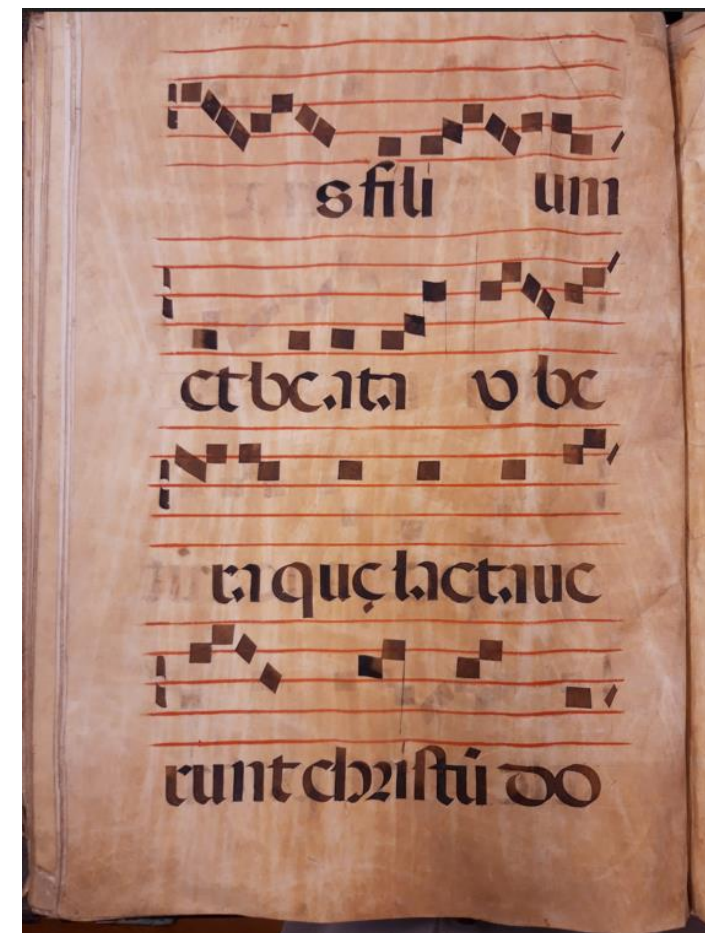 s fili um
et beata v be
ra quę lactaue
runt christū do